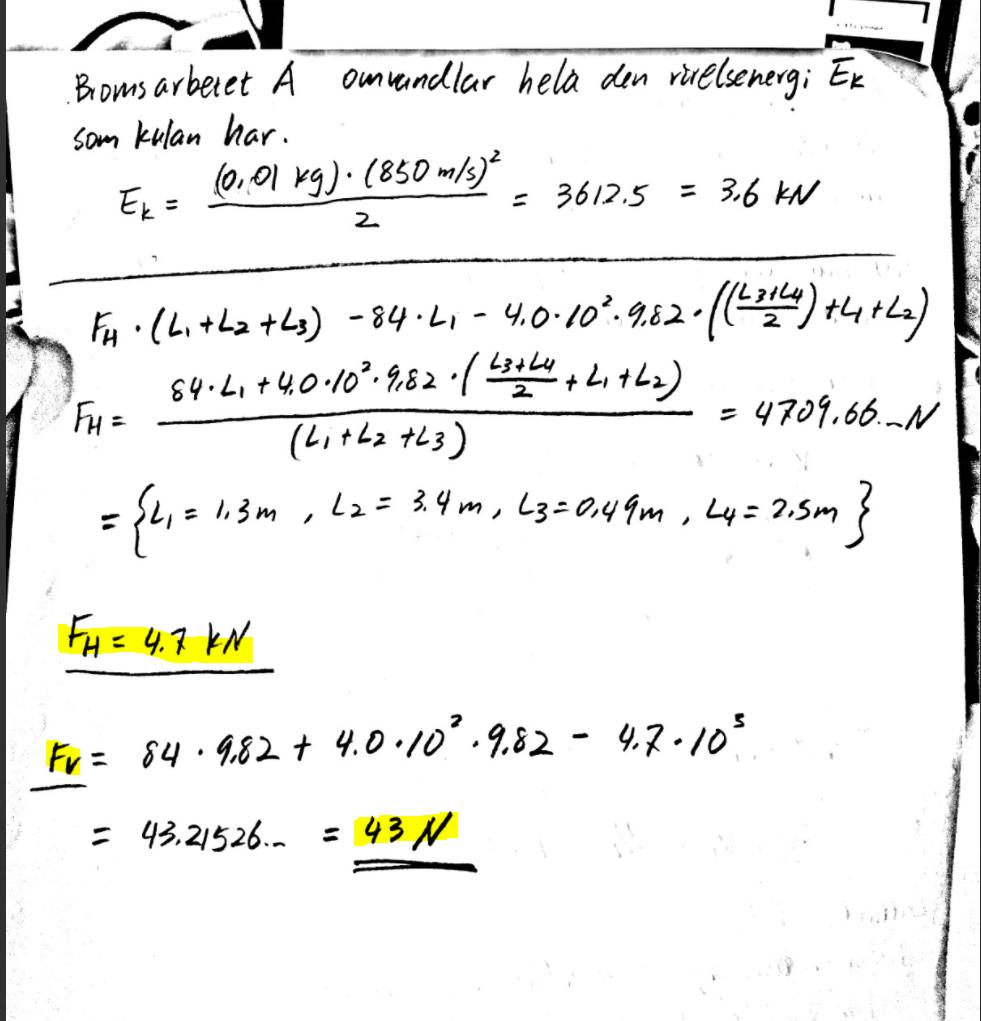 Bromsarbetet A omvandlar hela den rörelsenergi Ek
som kulan har.
Ek = (0,01 kg) · (850 m/s)² / 2 = 3612.5 = 3,6 kN
FH · (L1 + L2 + L3) - 84 · L1 - 4.0 · 10² · 9.82 · ((L3+L4 / 2) + L1 + L2)
FH = 84 · L1 + 4.0 · 10² · 9,82 · (L3+L4 / 2 + L1 + L2) / (L1 + L2 + L3) = 4709,66... N
= {L1 = 1,3 m , L2 = 3.4 m, L3 = 0,49 m , L4 = 2.5 m}
FH = 4.7 kN
FV = 84 · 9,82 + 4.0 · 10² · 9.82 - 4.7 · 10³
= 43.21526... = 43 N